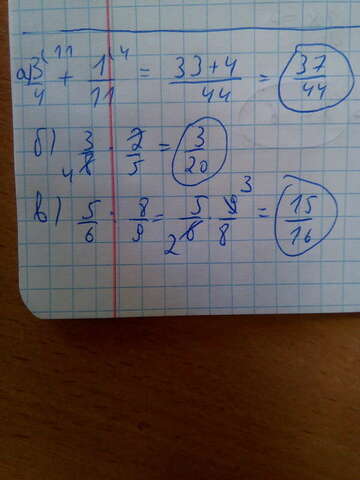 а) 3/4 ^11 + 1/11 ^4 = (33+4)/44 = 37/44
б) 3/8 4 · 2/5 = 3/20
в) 5/6 : 8/9 = 5/6 2 · 9/8 3 = 15/16